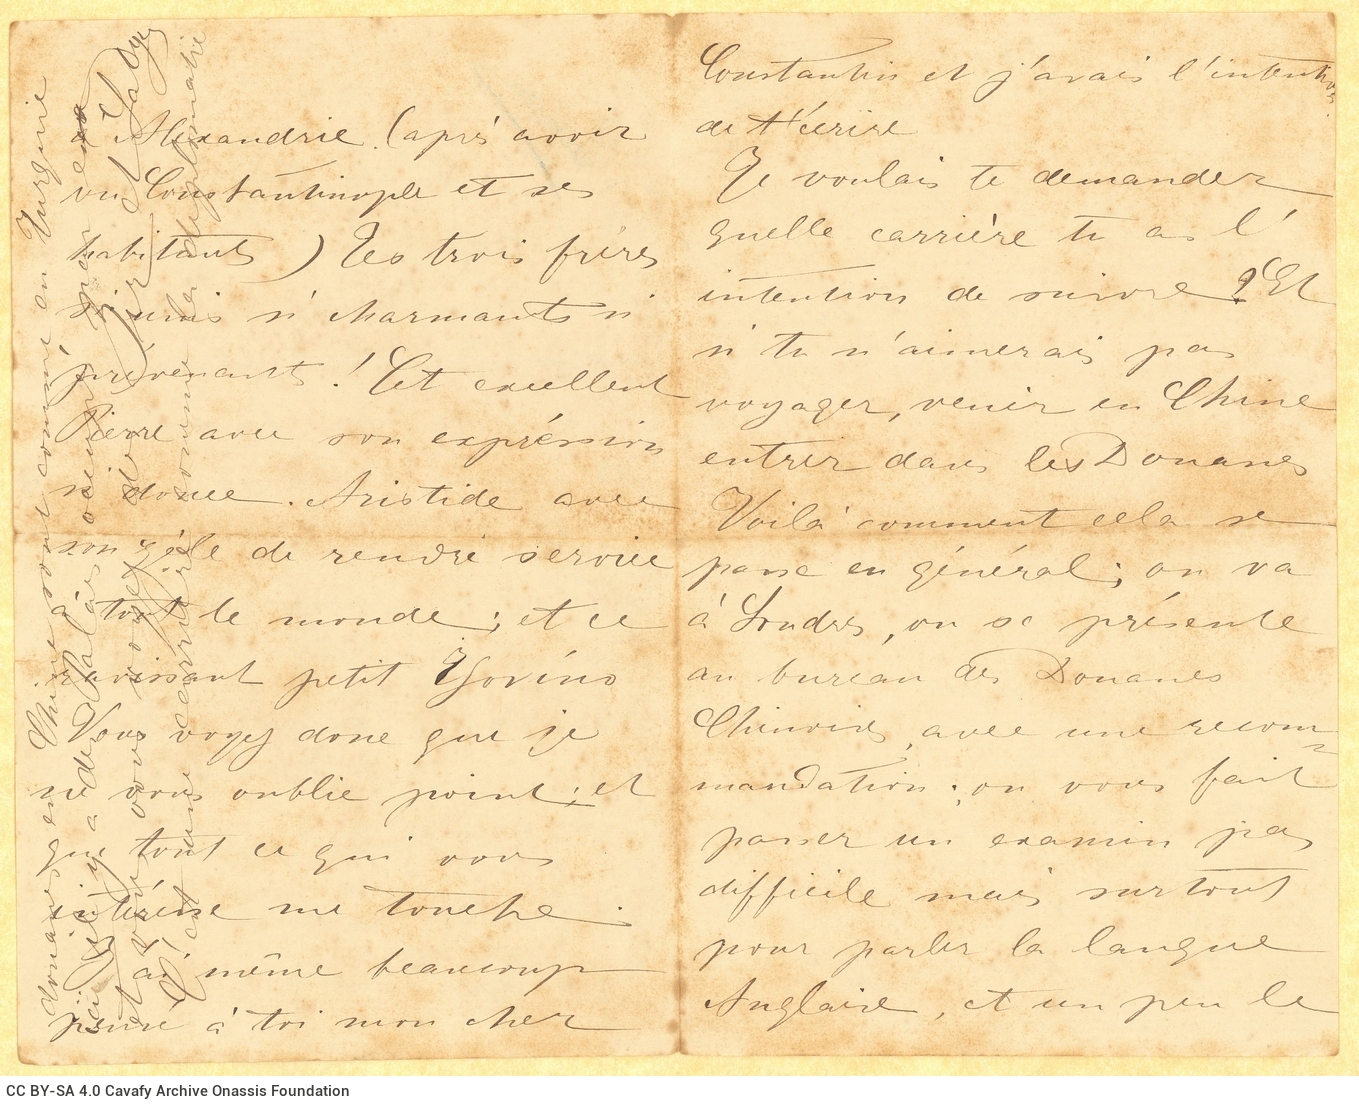 à Alexandrie. (après avoir
vu Constantinople et ses
habitants) Les trois frères
si unis si charmants si
prévenants! Cet excellent
Pierre avec son expréssion
si douce. Aristide avec
son zèle de rendre service
à tout le monde; et ce
ravissant petit
Vous voyez donc que je
ne vous oublie point; et
que tout ce qui vous
intéresse me touche.
J'ai même beaucoup
pensé à toi mon cher
Constantin et j'avais l'intention
de t'écrire
Je voulais te demander
quelle carrière tu as l'
intention de suivre? Et
si tu n'aimerais pas
voyager, venir en Chine
entrer dans les Douanes
Voilà comment cela se
passe en général; on va
à Londres, on se présente
au bureau des Douanes
Chinoises, avec une recom
mandation; on vous fait
passer un examin pas
difficile mais surtout
pour parler la langue
Anglaise, et un peu le
douanes en Chine sont comme en Turquie
où il y a des Palais
et vous vous voyez
C'est une carrière comme la diplomatie